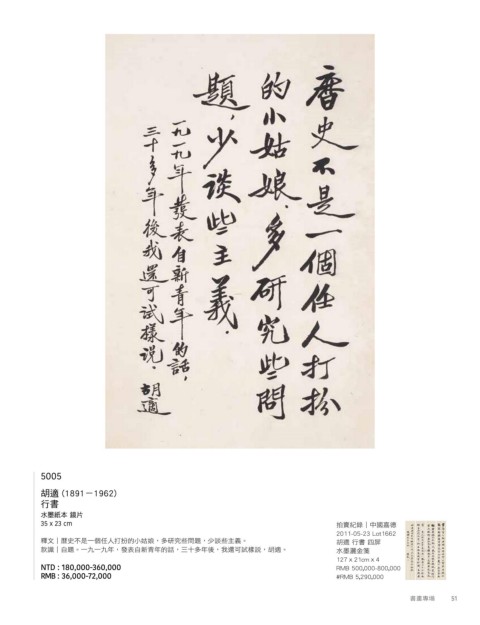 曆史不是一個任人打扮
的小姑娘．多研究些問
題，少談些主義．
一九一九年發表自新青年的話，
三十多年後我還可試樣說．胡適
5005
胡適 (1891－1962)
行書
水墨紙本 鏡片
35 x 23 cm
釋文｜歷史不是一個任人打扮的小姑娘，多研究些問題，少談些主義。
款識｜自題。一九一九年，發表自新青年的話，三十多年後，我還可試樣說，胡適。
NTD : 180,000-360,000
RMB : 36,000-72,000
拍賣紀錄｜中國嘉德
2011-05-23 Lot1662
胡適 行書 四屏
水墨灑金箋
127 x 21cm x 4
RMB 500,000-800,000
#RMB 5,290,000
書畫專場 51